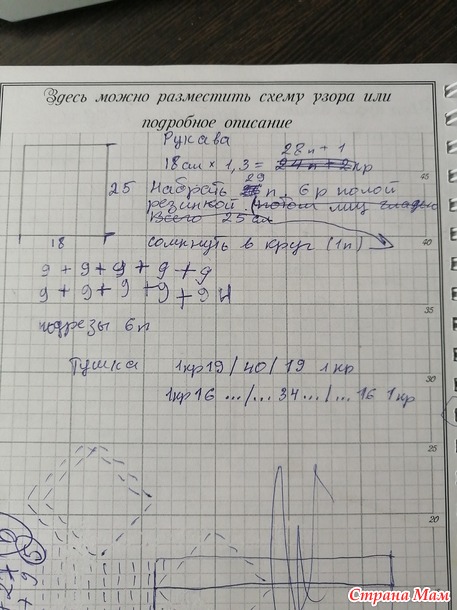 Здесь можно разместить схему узора или
подробное описание
Рукава
28п + 1
18см × 1,3 = 24п + 2кр
29
25 Набрать п, 6 р полой
резинкой, потом лиц гладью
Всего 25 см
18
сомкнуть в круг (1п)
9 + 9 + 9 + 9 + 9
9 + 9 + 9 + 9 + 9 н
подрезы 6п
Тушка 1кр 19 / 40 / 19 1 кр
1кр 16 ... /... 34 ... / ... 16 1кр
45
40
35
30
25
20
Страна Мам